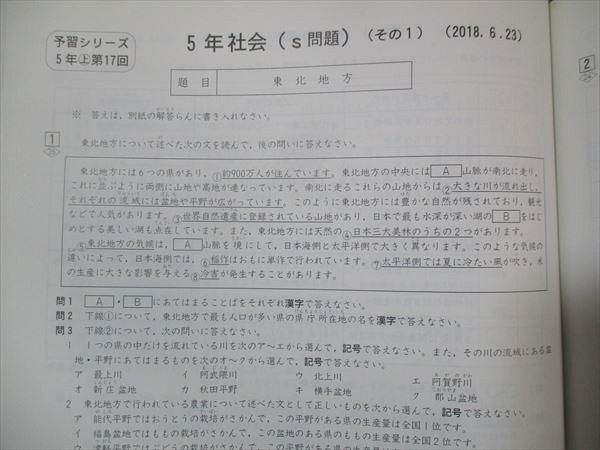 予習シリーズ
5年㊤第17回
5年社会(s問題)(その1) (2018.6.23)
題目 東北地方
※ 答えは,別紙の解答らんに書き入れなさい。
1
東北地方について述べた次の文を読んで,後の問いに答えなさい。
東北地方には6つの県があり,①約900万人が住んでいます。東北地方の中央には A 山脈が南北に走り,
これに並ぶように両側に山地や高地が連なっています。南北に走るこれらの山地からは②大きな川が流れ出し,
それぞれの流域には盆地や平野が広がっています。このように東北地方には豊かな自然が残されており,観光
などで人気があります。③世界自然遺産に登録されている山地があり,日本で最も水深が深い湖の B をはじ
めとする美しい湖も点在しています。また,東北地方には天然の④日本三大美林のうちの2つがあります。
⑤東北地方の気候は, A 山脈を境にして,日本海側と太平洋側で大きく異なります。このような気候の
違いによって,日本海側では,⑥稲作はおもに単作で行われています。⑦太平洋側では夏に冷たい風が吹き,米
の生産に大きな影響を与える⑧冷害が発生することがあります。
問1 A ・ B にあてはまることばをそれぞれ漢字で答えなさい。
問2 下線①について,東北地方で最も人口が多い県の県庁所在地の名を漢字で答えなさい。
問3 下線②について,次の問いに答えなさい。
1 1つの県の中だけを流れている川を次のア〜エから選んで,記号で答えなさい。また,その川の流域にある盆
地・平野にあてはまるものを次のオ〜クから選んで,記号で答えなさい。
ア 最上川 イ 阿武隈川 ウ 北上川 エ 阿賀野川
オ 新庄盆地 カ 秋田平野 キ 横手盆地 ク 郡山盆地
2 東北地方で行われている農業について述べた文として正しいものを次から選んで,記号で答えなさい。
ア 能代平野ではおうとうの栽培がさかんで,この平野がある県の生産量は全国1位です。
イ 福島盆地ではももの栽培がさかんで,この盆地のある県のももの生産量は全国2位です。
2